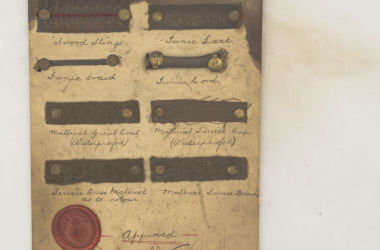 Sword Slings
Tunic Lace
Tunic braid
Tunic Cord
Material Great Coat
(Waterproofed)
Material Service Cap
(Waterproofed)
Service Dress Material
as to colour
Material Service
Approved